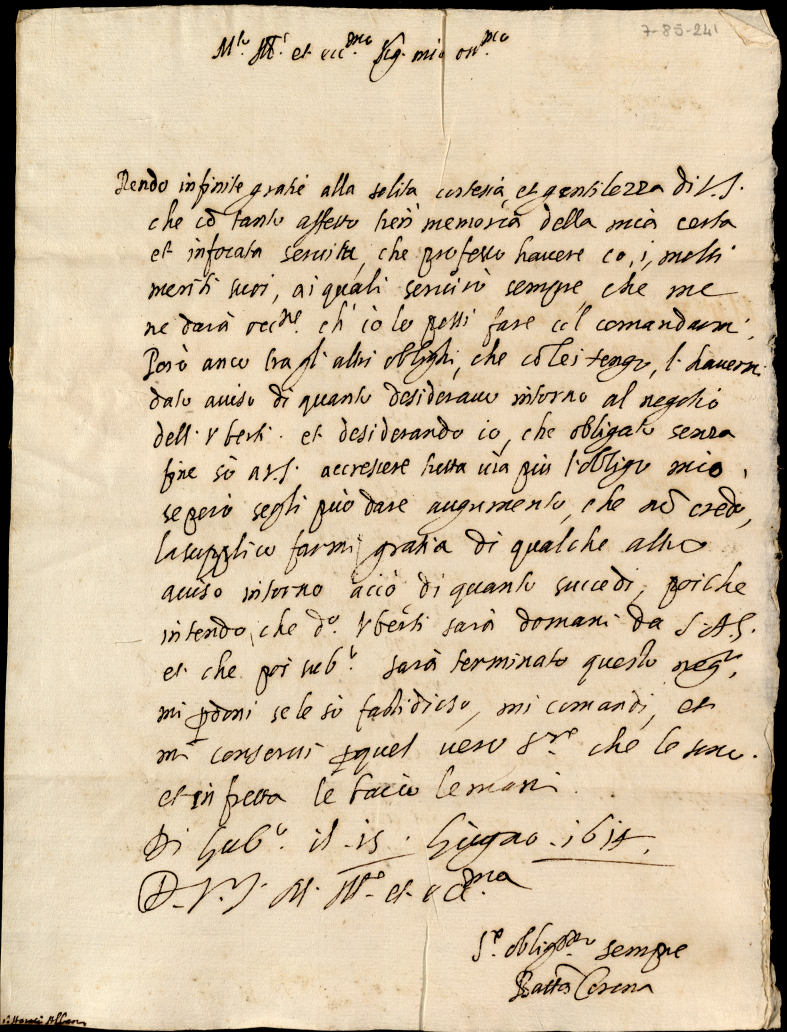 7-85-241
M.to Ill.re et ecc.mo Sig. mio oss.mo
Rendo infinite gratie alla solita cortesia, et gentilezza di V.S.
che cō tanto affetto tien memoria della mia certa
et infocata servitù, che professo havere co, i, molti
meriti suoi, ai quali servirò sempre, che me
ne darà occ.ne ch' io lo possi fare col comandarmi,
Però anco tra gli altri oblighi, che cō lei tengo, l' havermi
dato aviso di quanto desideravo intorno al negotio
dell' Vberti. et desiderando io, che obligato senza
fine sō a V.S. accrescere tutta via più l'obligo mio,
se però segli può dare augumento, che nō credo,
la supplico farmi gratia di qualche altro
aviso intorno acciò di quanto succedi, poiche
intendo, che d.o Vberti sarà domani da S.A.S.
et che poi sub.o sarà terminato questo neg.o,
mi p̱doni se le sō fastidioso, mi comandi, et
mi conservi p̱ quel vero S.re che le sono.
et in fretta le bacio le mani.
Di Gub.o il 15. Giugno. 1614.
D. V. S. M. Ill.re et ecc.ma
S.re oblig.mo sempre
Batta Cesena